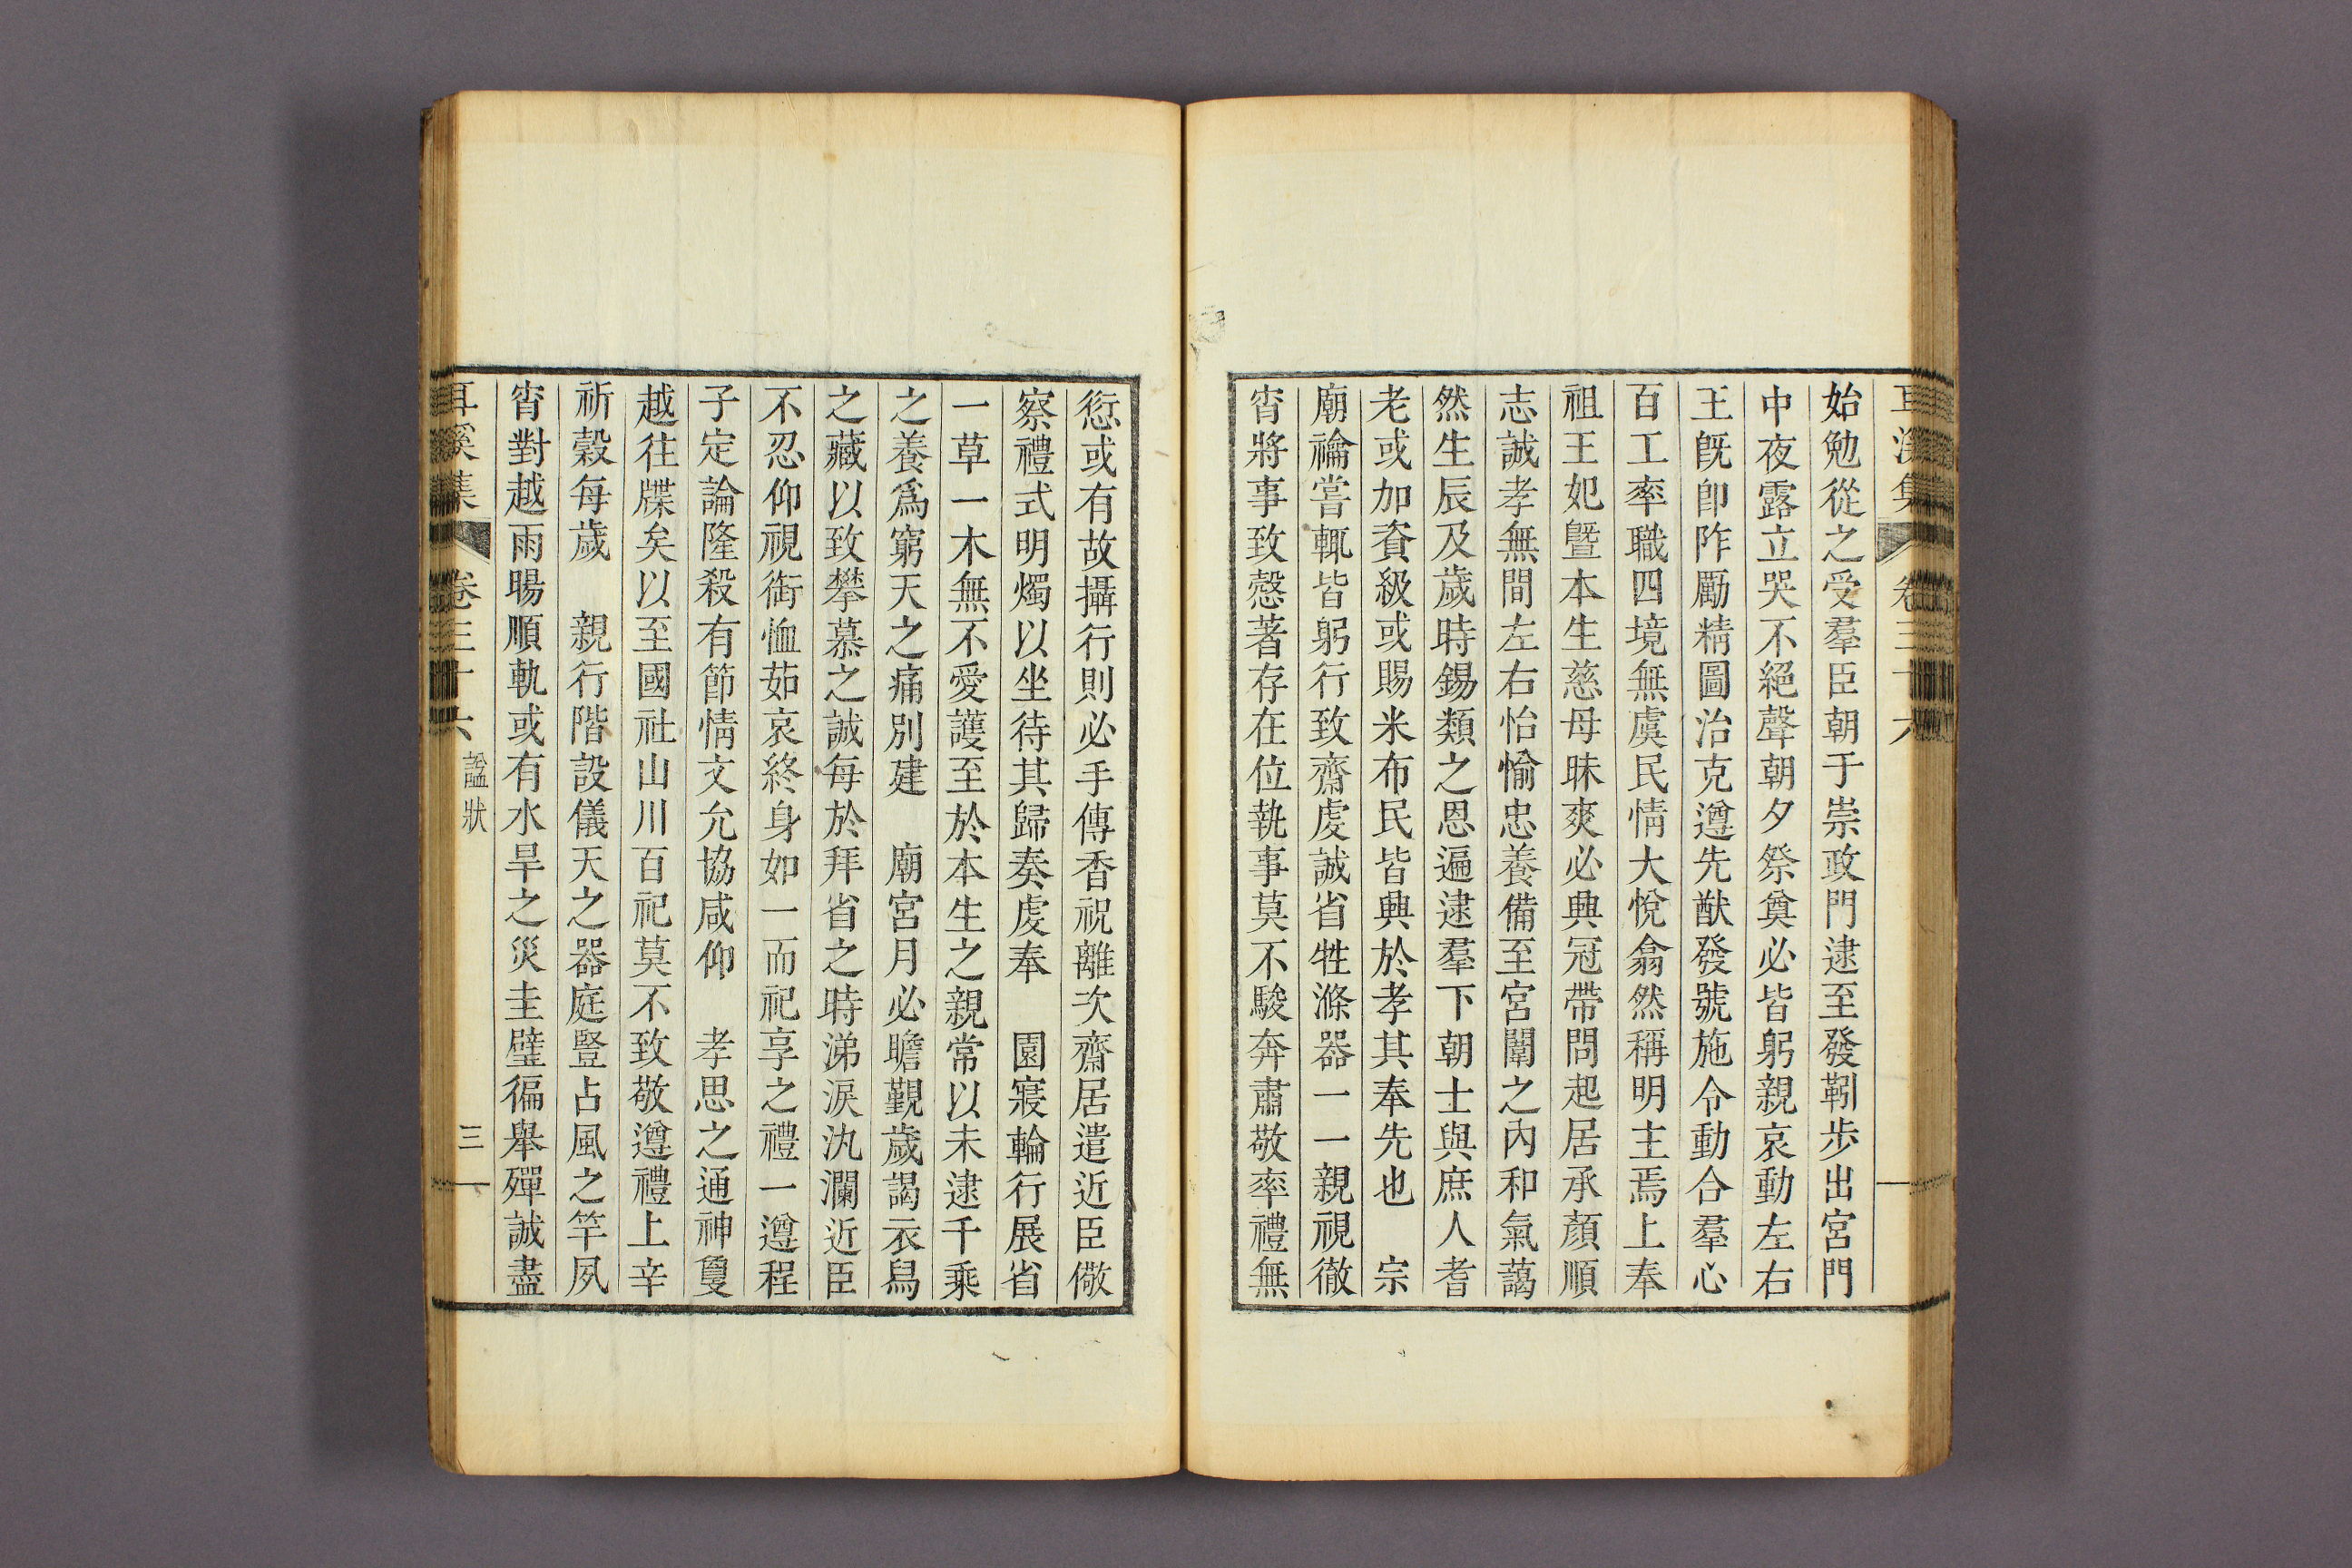 耳溪集 卷三十六
始勉從之受羣臣朝于崇政門逮至發靷步出宮門
中夜露立哭不絕聲朝夕祭奠必皆躬親哀動左右
王旣卽阼勵精圖治克遵先猷發號施令動合羣心
百工率職四境無虞民情大悅翕然稱明主焉上奉
祖王妃曁本生慈母昧爽必興冠帶問起居承顏順
志誠孝無間左右怡愉忠養備至宮闈之內和氣藹
然生辰及歲時錫類之恩遍逮羣下朝士與庶人耆
老或加資級或賜米布民皆興於孝其奉先也 宗
廟禴嘗輒皆躬行致齋虔誠省牲滌器一一親視徹
宵將事致慤著存在位執事莫不駿奔肅敬率禮無
愆或有故攝行則必手傳香祝離次齋居遣近臣儆
察禮式明燭以坐待其歸奏虔奉 園寢輪行展省
一草一木無不愛護至於本生之親常以未逮千乘
之養爲窮天之痛別建 廟宮月必瞻覲歲謁衣舃
之藏以致攀慕之誠每於拜省之時涕淚汍瀾近臣
不忍仰視銜恤茹哀終身如一而祀享之禮一遵程
子定論隆殺有節情文允協咸仰 孝思之通神㪅
越往牒矣以至國社山川百祀莫不致敬遵禮上辛
祈穀每歲 親行階設儀天之器庭豎占風之竿夙
宵對越雨暘順軌或有水旱之災圭璧徧舉殫誠盡
耳溪集 卷三十六 諡狀 三